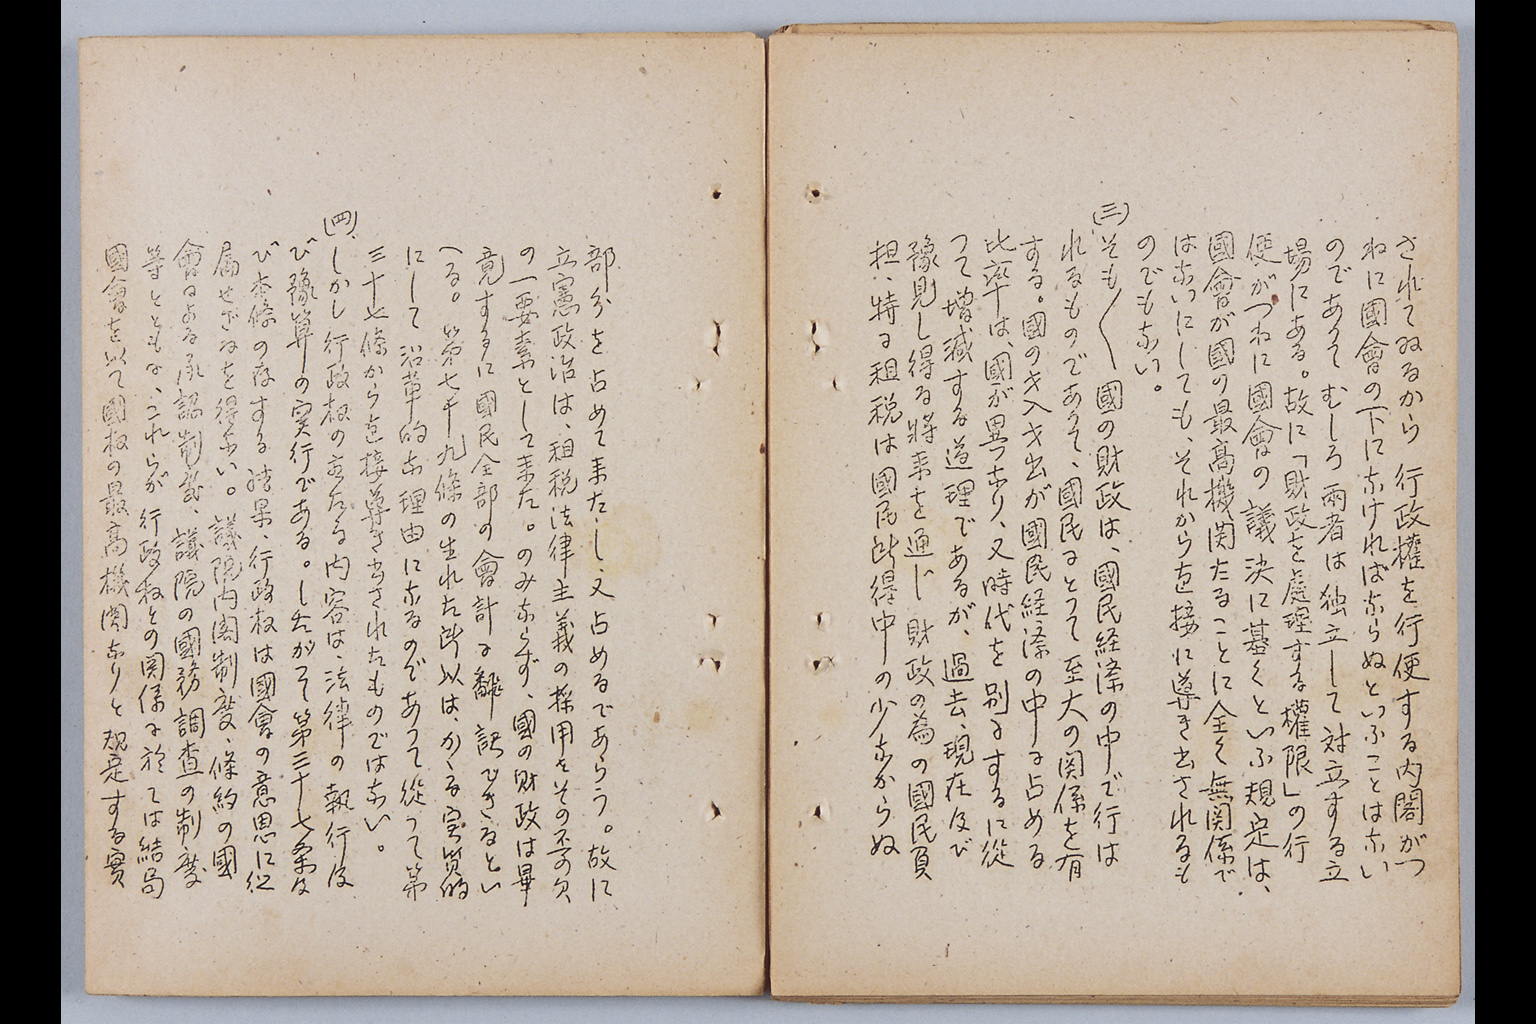 されてゐるから行政權を行使する内閣がつ
ねに國會の下になければならぬといふことはない
のであつてむしろ兩者は独立して対立する立
場にある。故に「財政を處理する權限」の行
使がつねに國會の議決に基くといふ規定は、
國會が國の最高機関たることに全く無関係で
はないにしても、それから直接に導き出されるも
のでもない。
(三)そも〱國の財政は、國民経済の中で行は
れるものであつて、國民にとつて至大の関係を有
する。國の才入才出が國民経済の中に占める
比率は、國が異なり、又時代を別にするに從
つて増減する道理であるが、過去、現在及び
豫見し得る將来を通じ財政の為の國民負
担、特に租税は國民所得中の少なからぬ
部分を占めて来たし、又占めるであらう。故に
立憲政治は、租税法律主義の採用をその不可欠
の一要素として来た。のみならず、國の財政は畢
竟するに國民全部の會計に飜訳できるとい
へる。第七十九條の生れた所以は、かゝる実質的
にして沿革的な理由になるのであつて從つて第
三十七條から直接導き出されたものではない。
(四)、しかし行政权の主たる内容は、法律の執行及
び豫算の実行である。したがつて第三十七条及
び本條の存する結果、行政权は國會の意思に従
属せざるを得ない。議院内閣制度、條約の國
會による承認制度、議院の國務調査の制度
等とともに、これらが行政权との関係に於ては結局
國會を以て國权の最高機関なりと規定する実